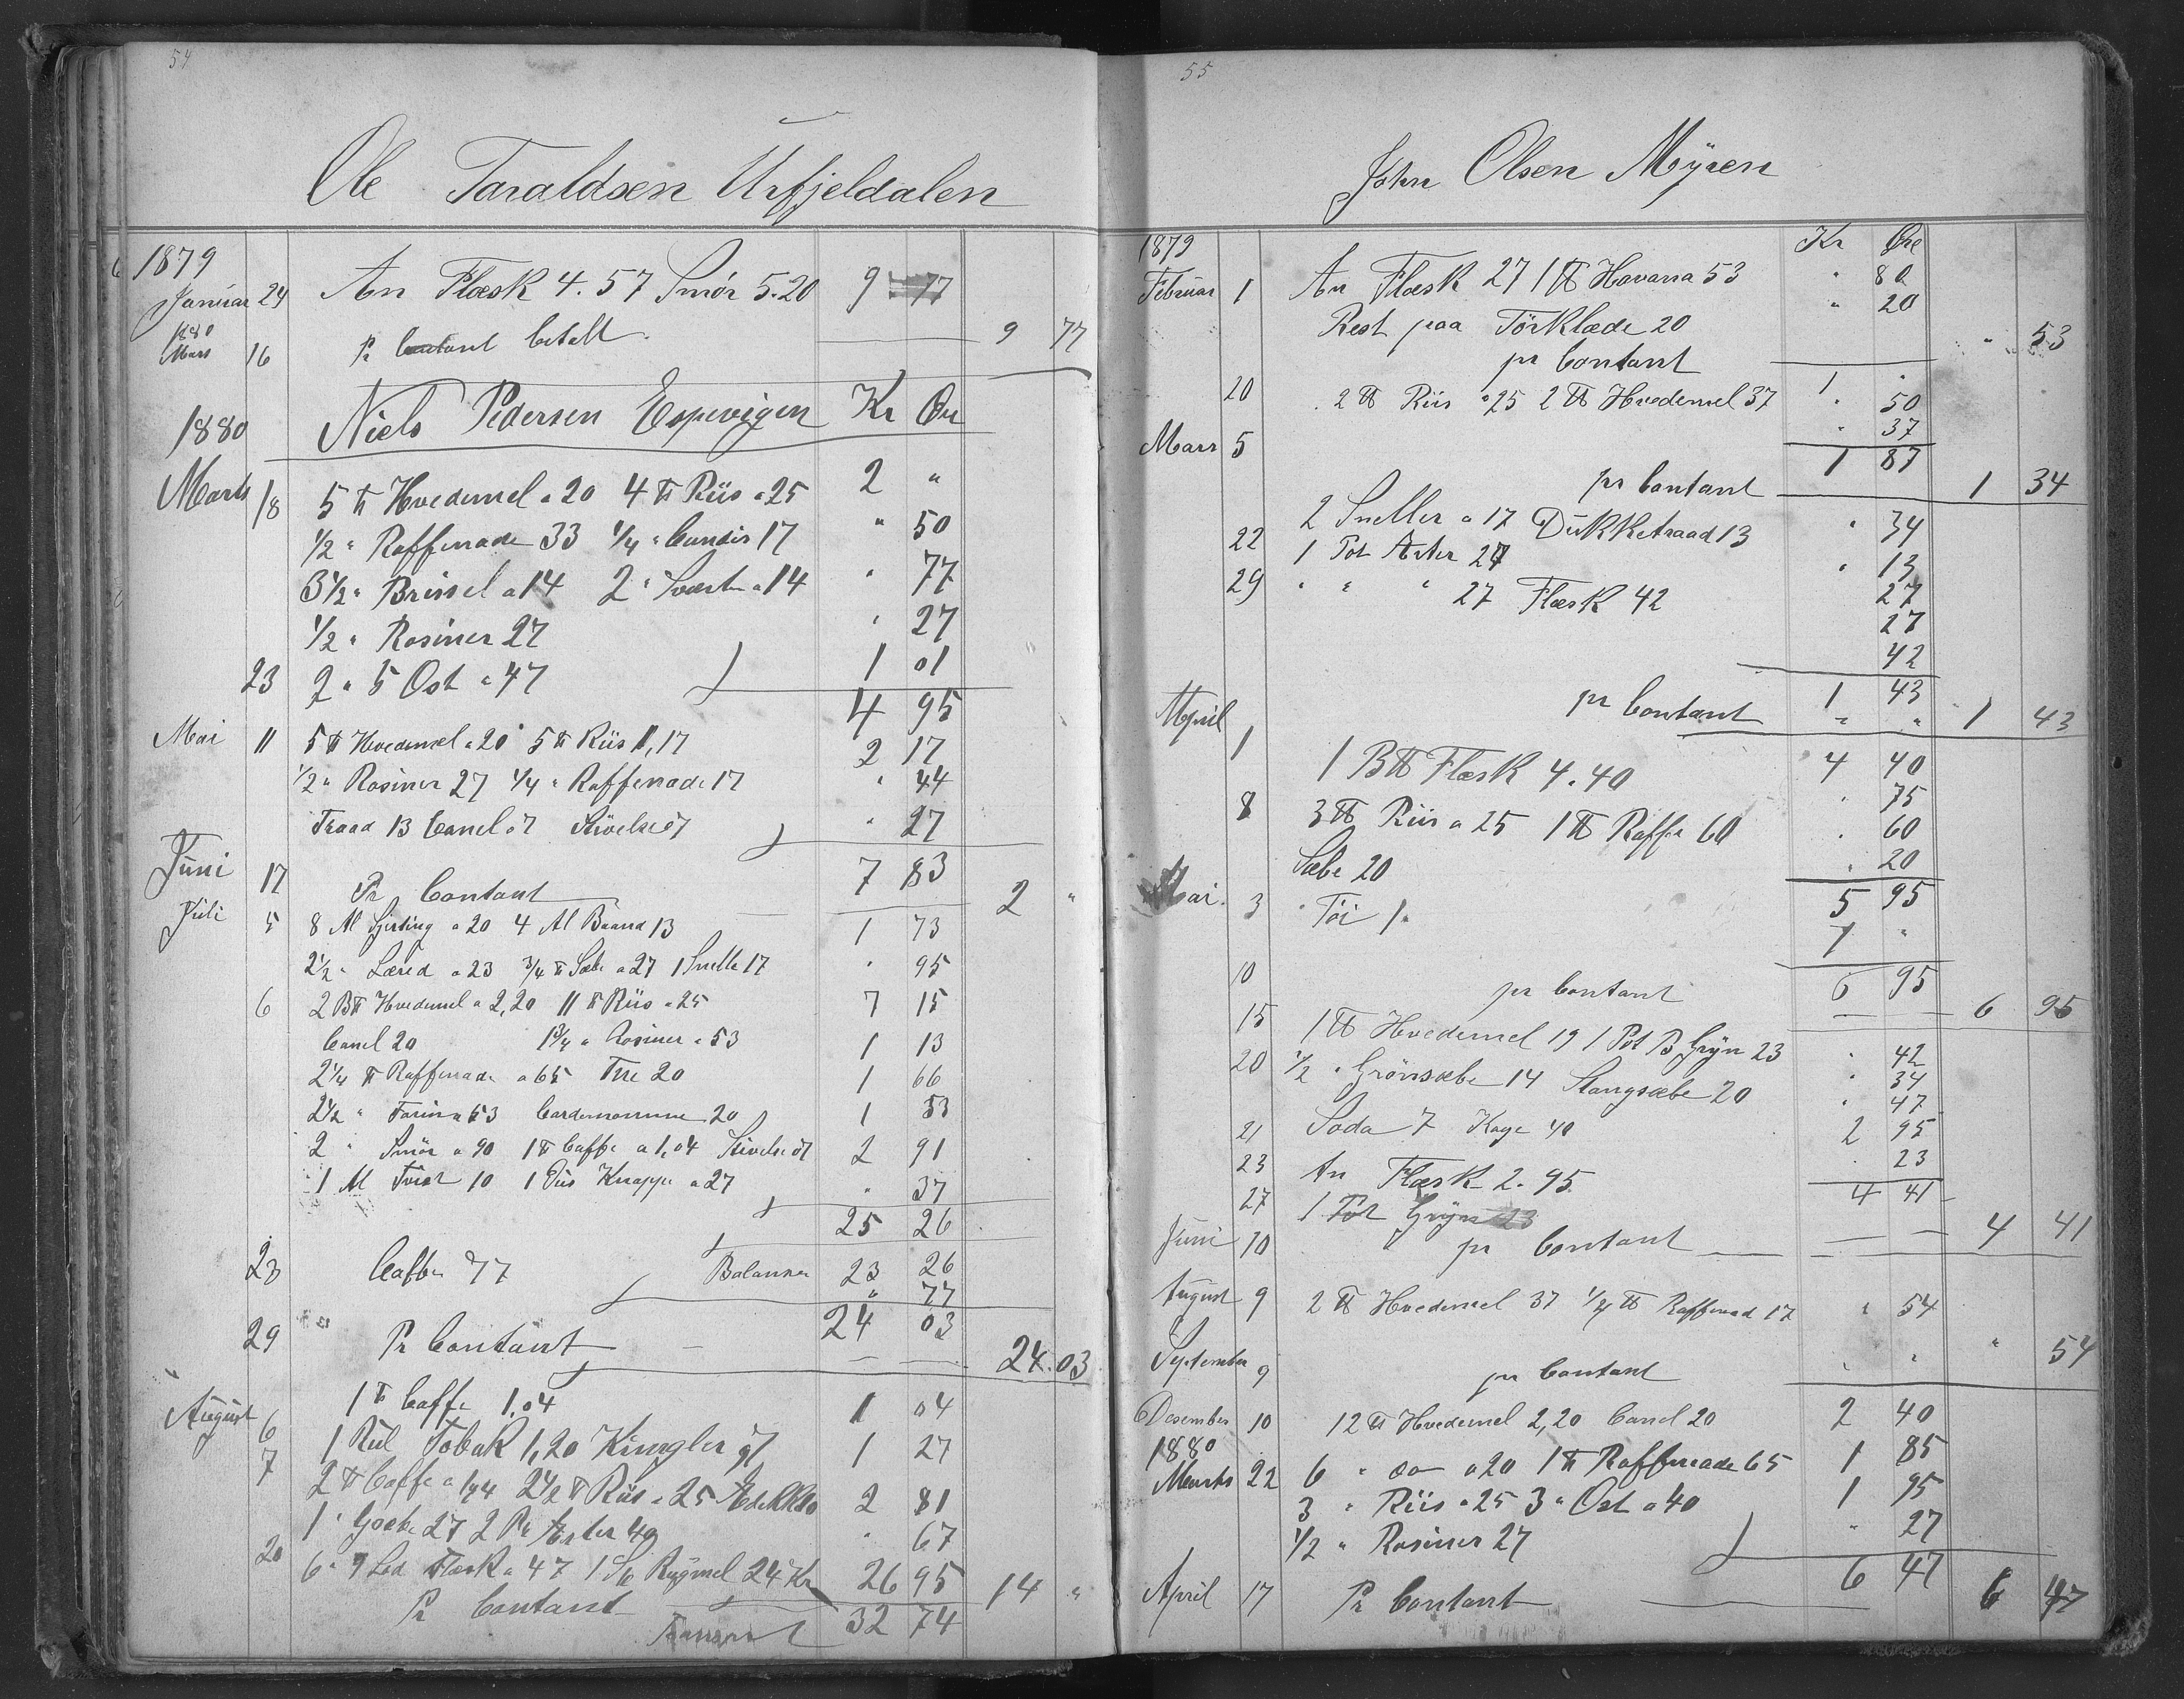 54
Ole Taraldsen Urfjeldalen
1879
Januar 24 An Flæsk 4.57 Smör 5.20 9 77
1880
Mars 16 Pr Contant betalt 9 77
1880 Niels Pedersen Espevigen Kr Øre
Marts 18 5 ℔ Hvedemel a 20 4 ℔ Riis a 25 2 "
1/2 " Raffenade 33 1/4 " Candis 17 " 50
3 1/2 " Brissel a 14 2 " Svæsk a 14 " 77
1/2 " Rosiner 27 " 27
23 2 " 5 Ost a 47 1 01
4 95
Mai 11 5 ℔ Hvedemel a 20 5 ℔ Riis 1,17 2 17
1/2 " Rosiner 27 1/4 " Raffenade 17 " 44
Traad 13 Canel 07 Stivelse 07 " 27
7 83
Juni 17 Pr Contant 2 "
Juli 5 8 Al Sjirting a 20 4 Al Baand 13 1 73
2 1/2 " Læred a 23 3/4 ℔ Sæbe a 27 1 Snelle 17 " 95
6 2 B℔ Hvedemel a 2,20 11 ℔ Riis a 25 7 15
Canel 20 1 3/4 " Rosiner a 53 1 13
2 1/4 ℔ Raffenade a 65 Tne 20 1 66
2 1/2 " Farin a 53 Cardemomme 20 1 53
2 " Smör a 90 1 ℔ Caffe a 1,04 Stivelse 07 2 91
1 Al Tvist 10 1 Dus Knappe a 27 " 37
25 26
Balanse 23 26
23 Caffe 77 " 77
24 03
29 Pr Contant 24.03
August 6 1 ℔ Caffe 1.04 1 04
7 1 Rul Tobak 1,20 Kringler 07 1 27
2 ℔ Caffe a 1,04 2 1/2 ℔ Riis a 25 Edikk 10 2 81
1 " 27 2 Pr Erter 40 " 67
20 6 " 9 Lod Flæsk a 47 1 Sk Rugmel 24 Kr 26 95
Pr Contant 14 "
Transport 32 74
55
John Olsen Myren
1879 Kr Øre
Februar 1 An Flæsk 27 1 ℔ Havana 53 " 80
Rest paa Törklæde 20 " 20
pr Contant " 53
1 "
20 2 ℔ Riis a 25 2 ℔ Hvedemel 37 " 50
" 37
1 87
Mars 5 pr Contant 1 34
2 Sneller a 17 Dukketraad 13 " 34
22 1 Pot Erter 27 " 13
29 " " " 27 Flæsk 42 27
27
42
1 43
April 1 pr Contant " " 1 43
1 B℔ Flæsk 4.40 4 40
8 3 ℔ Riis a 25 1 ℔ Raffe 60 " 75
" 60
Sæbe 20 " 20
5 95
Mai 3 Töi 1. 1 "
6 95
10 pr Contant 6 95
15 1 ℔ Hvedemel 19 1 Pot B Gryn 23 " 42
20 1/2 " Grönsæbe 14 Stangsæbe 20 " 34
21 Soda 7 Kage 40 " 47
23 An Flæsk 2.95 2 95
27 1 Pot Gryn 23 " 23
4 41
Juni 10 pr Contant 4 41
August 9 2 ℔ Hvedemel 37 1/4 ℔ Raffenad 17 " 54
September 9 pr Contant " " " 54
Desember 10 12 ℔ Hvedemel 2,20 Canel 20 2 40
1880
Marts 22 6 " do a 20 1 ℔ Raffenade 65 1 85
3 " Riis a 25 3 " Ost a 40 1 95
1/2 " Rosiner 27 " 27
6 47
April 17 Pr Contant 6 47